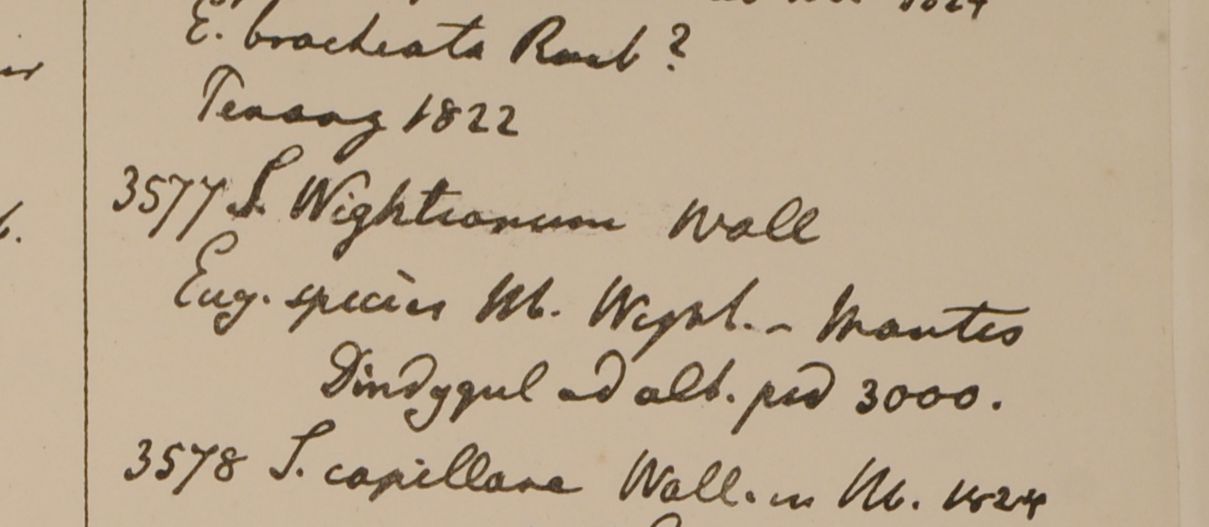 1824
E. bracteata Roxb?
Penang 1822
3577 S. Wightianum Wall
Eug. species Hb. Wight. - Montes
Dindygul ad alt. ped 3000.
3578 S. capillare Wall. in Hb. 1824